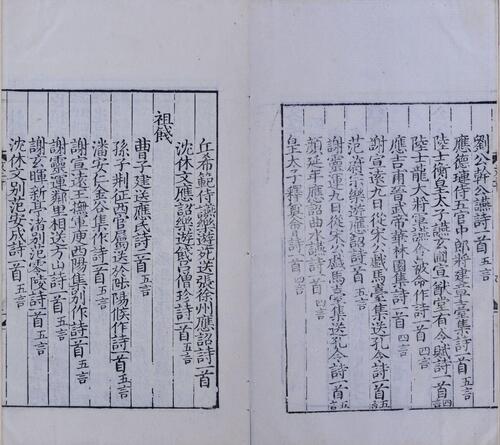 劉公幹公讌詩一首五言
應德璉侍五官中郎將建章臺集詩一首五言
陸士衡皇太子讌玄圃宣猷堂有令賦詩一首四言
陸士龍大將軍讌會被命作詩一首四言
應吉甫晉武帝華林園集詩一首四言
謝宣遠九日從宋公戲馬臺集送孔令詩一首五言
范蔚宗樂遊應詔詩一首五言
謝靈運九日從宋公戲馬臺集送孔令詩一首五言
顏延年應詔曲水讌詩一首四言
皇太子釋奠會詩一首四言
丘希範侍讌樂遊苑送張徐州應詔詩一首
沈休文應詔樂遊餞呂僧珍詩一首五言
祖餞
曹子建送應氏詩二首五言
孫子荊征西官屬送於陟陽候作詩一首五言
潘安仁金谷集作詩一首五言
謝宣遠王撫軍庾西陽集別作詩一首五言
謝靈運鄰里相送方山詩一首五言
謝玄暉新亭渚別范零陵詩一首五言
沈休文別范安成詩一首五言